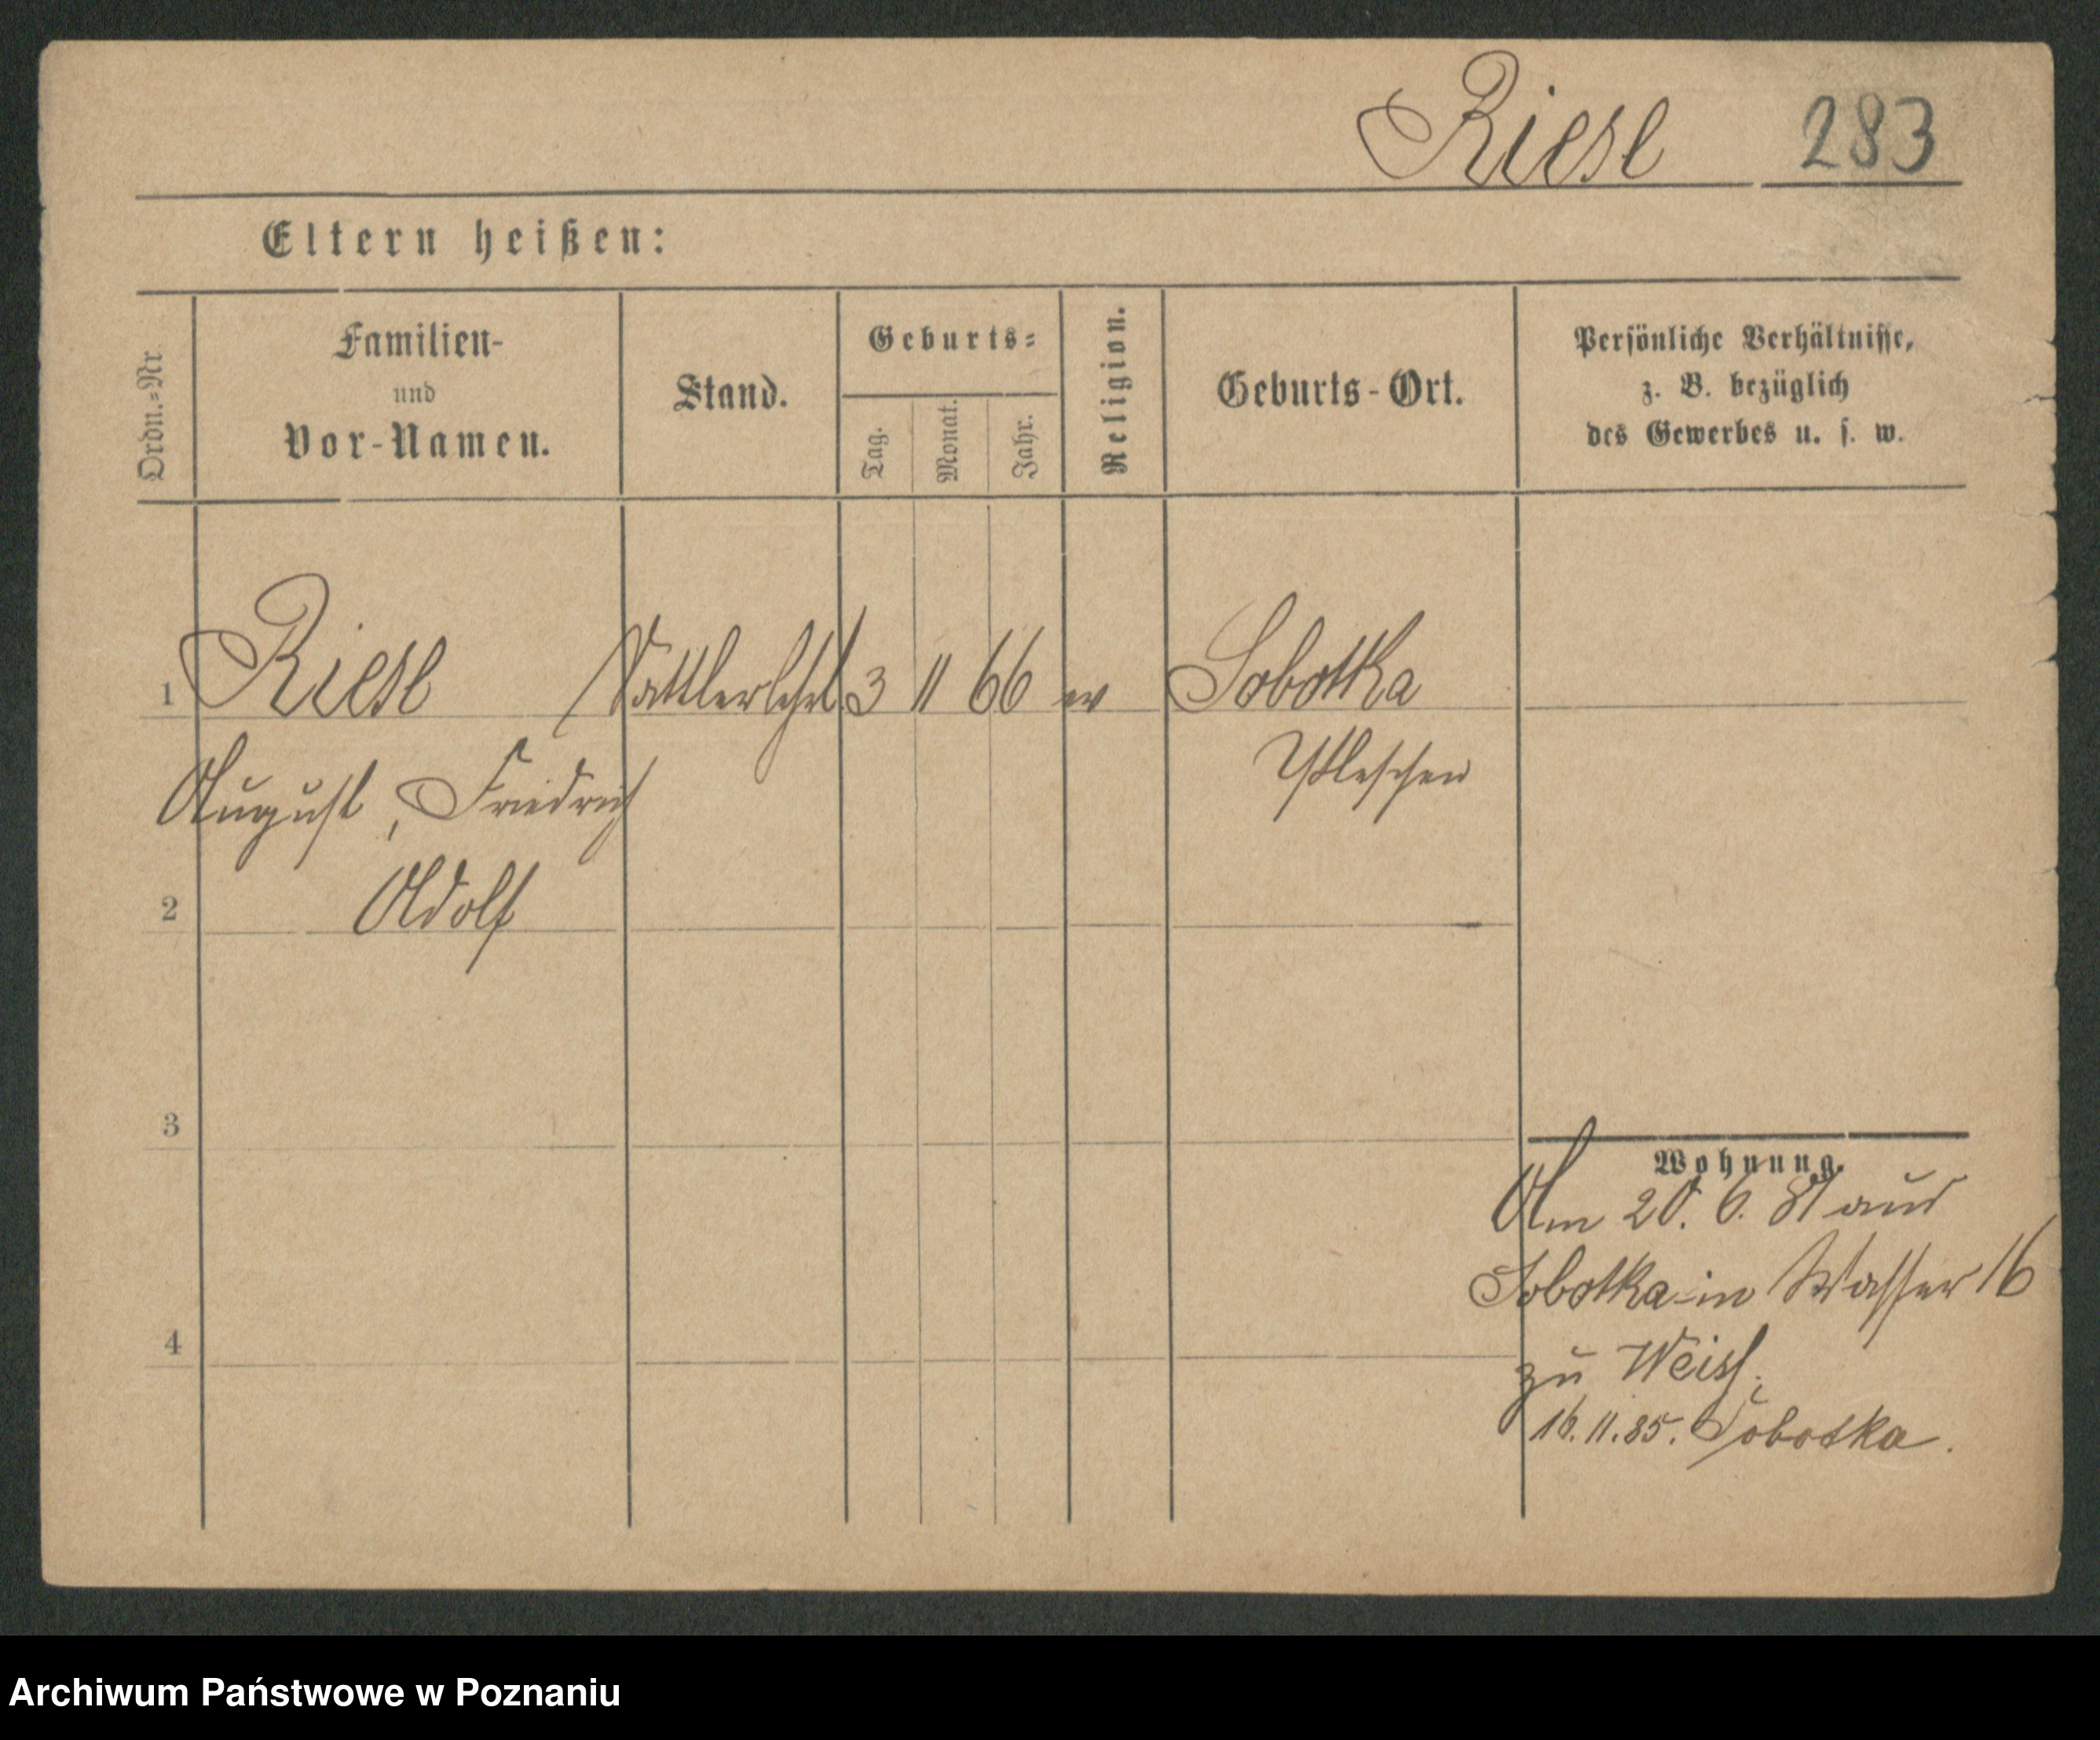 Riese 283
Eltern heißen:
Ordn.=Nr.
Familien-
und
Vor-Namen.
Stand.
Geburts=
Tag.
Monat.
Jahr.
Religion.
Geburts-Ort.
Persönliche Verhältnisse,
z. B. bezüglich
des Gewerbes u. s. w.
1 Riese Sattlerlehrl 3 11 66 ev Sobotka
August, Friedrich Pleschen
2 Adolf
3
Wohnung.
Am 20. 6. 81 aus
Sobotka in Wasser 16
4
zu Weiss.
16. 11. 85. Sobotka.
Archiwum Państwowe w Poznaniu